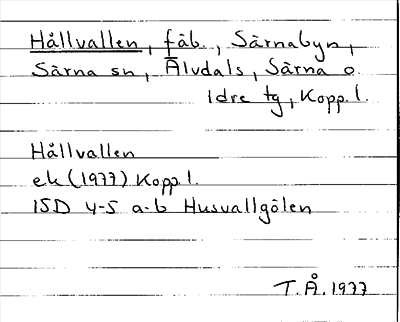 Hållvallen, fäb., Särnabyn,
Särna sn, Älvdals, Särna o
Idre tg, Kopp. l.
Hållvallen
ek (1977) Kopp. l.
15D 4-5 a-b Husvallgölen
T. Å. 1977